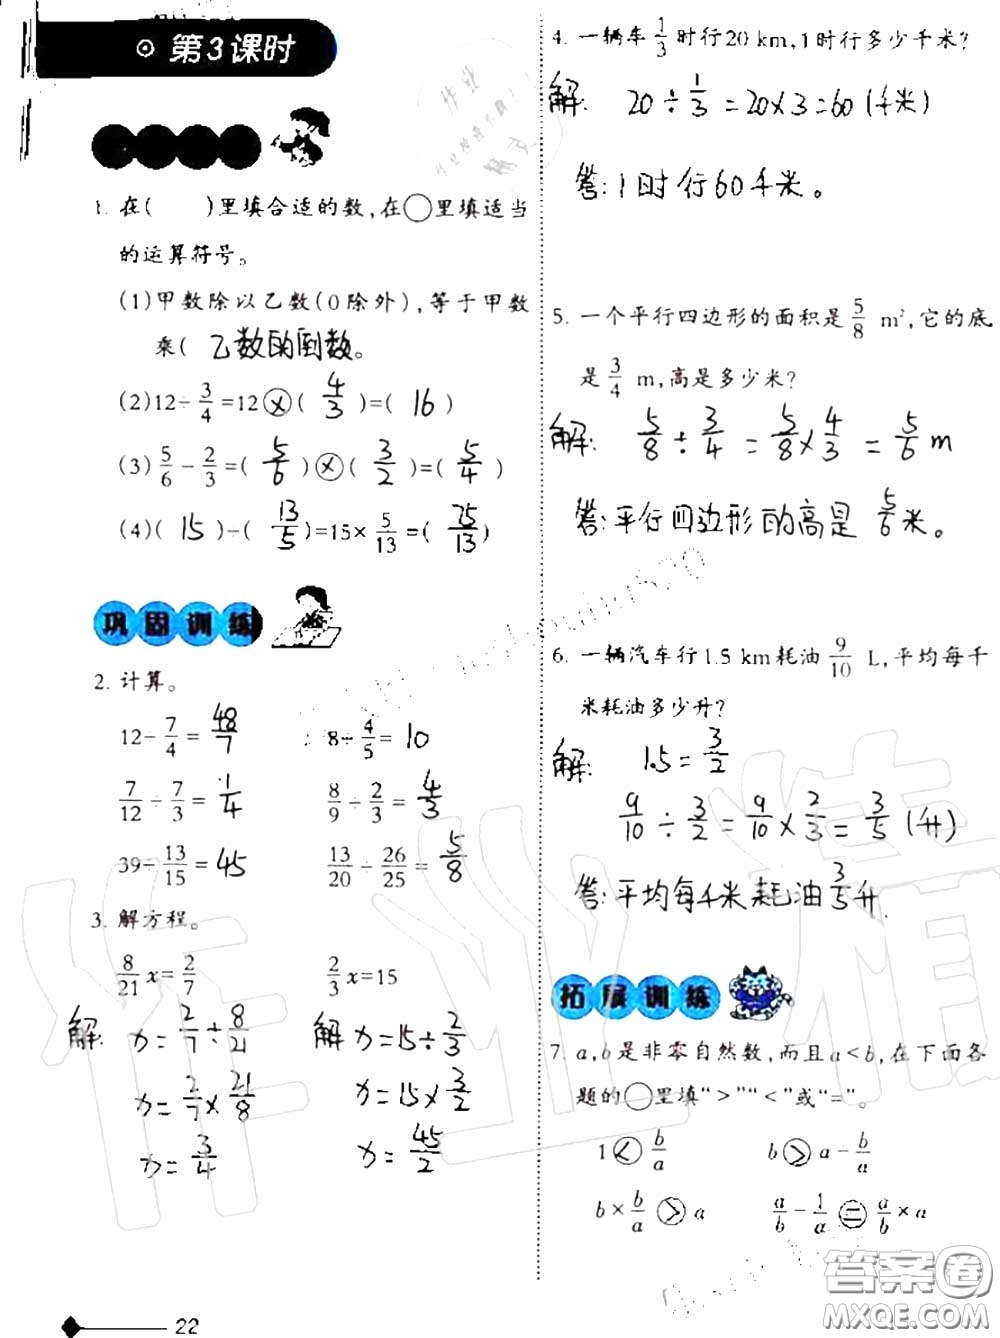 第3课时
1. 在(    )里填合适的数,在○里填适当
的运算符号。
(1)甲数除以乙数(0除外),等于甲数
乘( 乙数的倒数。
(2)12÷3/4=12⊗( 4/3 )=( 16 )
(3)5/6-2/3=( 5/6 )⊗( 3/2 )=( 5/4 )
(4)( 15 )-( 13/5 )=15×5/13=( 75/13 )
巩固训练
2. 计算。
12-7/4=48/7    8÷4/5=10
7/12÷7/3=1/4    8/9÷2/3=4/3
39-13/15=45    13/20÷26/25=5/8
3. 解方程。
8/21x=2/7    2/3x=15
解: x=2/7÷8/21    解: x=15÷2/3
x=2/7×21/8    x=15×3/2
x=3/4    x=45/2
22
4. 一辆车1/3时行20 km,1时行多少千米?
解: 20÷1/3=20×3=60(千米)
答:1时行60千米。
5. 一个平行四边形的面积是5/8 m²,它的底
是3/4 m,高是多少米?
解: 5/8÷3/4=5/8×4/3=5/6m
答:平行四边形的高是5/6米。
6. 一辆汽车行1.5 km耗油9/10 L,平均每千
米耗油多少升?
解: 1.5=3/2
9/10÷3/2=9/10×2/3=3/5(升)
答:平均每千米耗油3/5升.
拓展训练
7. a,b是非零自然数,而且a<b,在下面各
题的○里填">""<"或"="。
1<b/a    b>a-b/a
b×b/a>a    a/b-1/a=a/b×a
答案圈
MXQE.COM